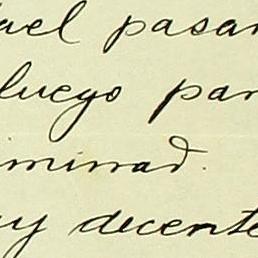 ael pasar
luego par
iminrad.
ay decente